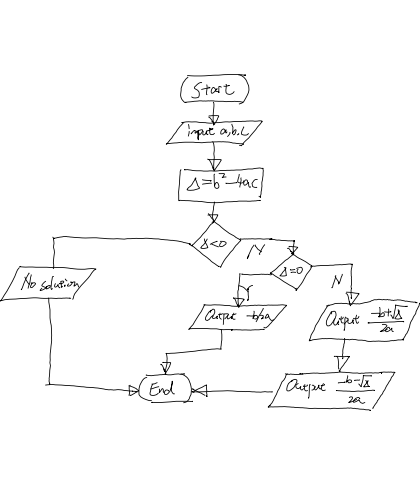 Start
input a,b,c
Δ=b²-4ac
Δ<0
N
Δ=0
N
Y
No solution
Output -b/2a
Output (-b+√Δ)/2a
Output (-b-√Δ)/2a
End